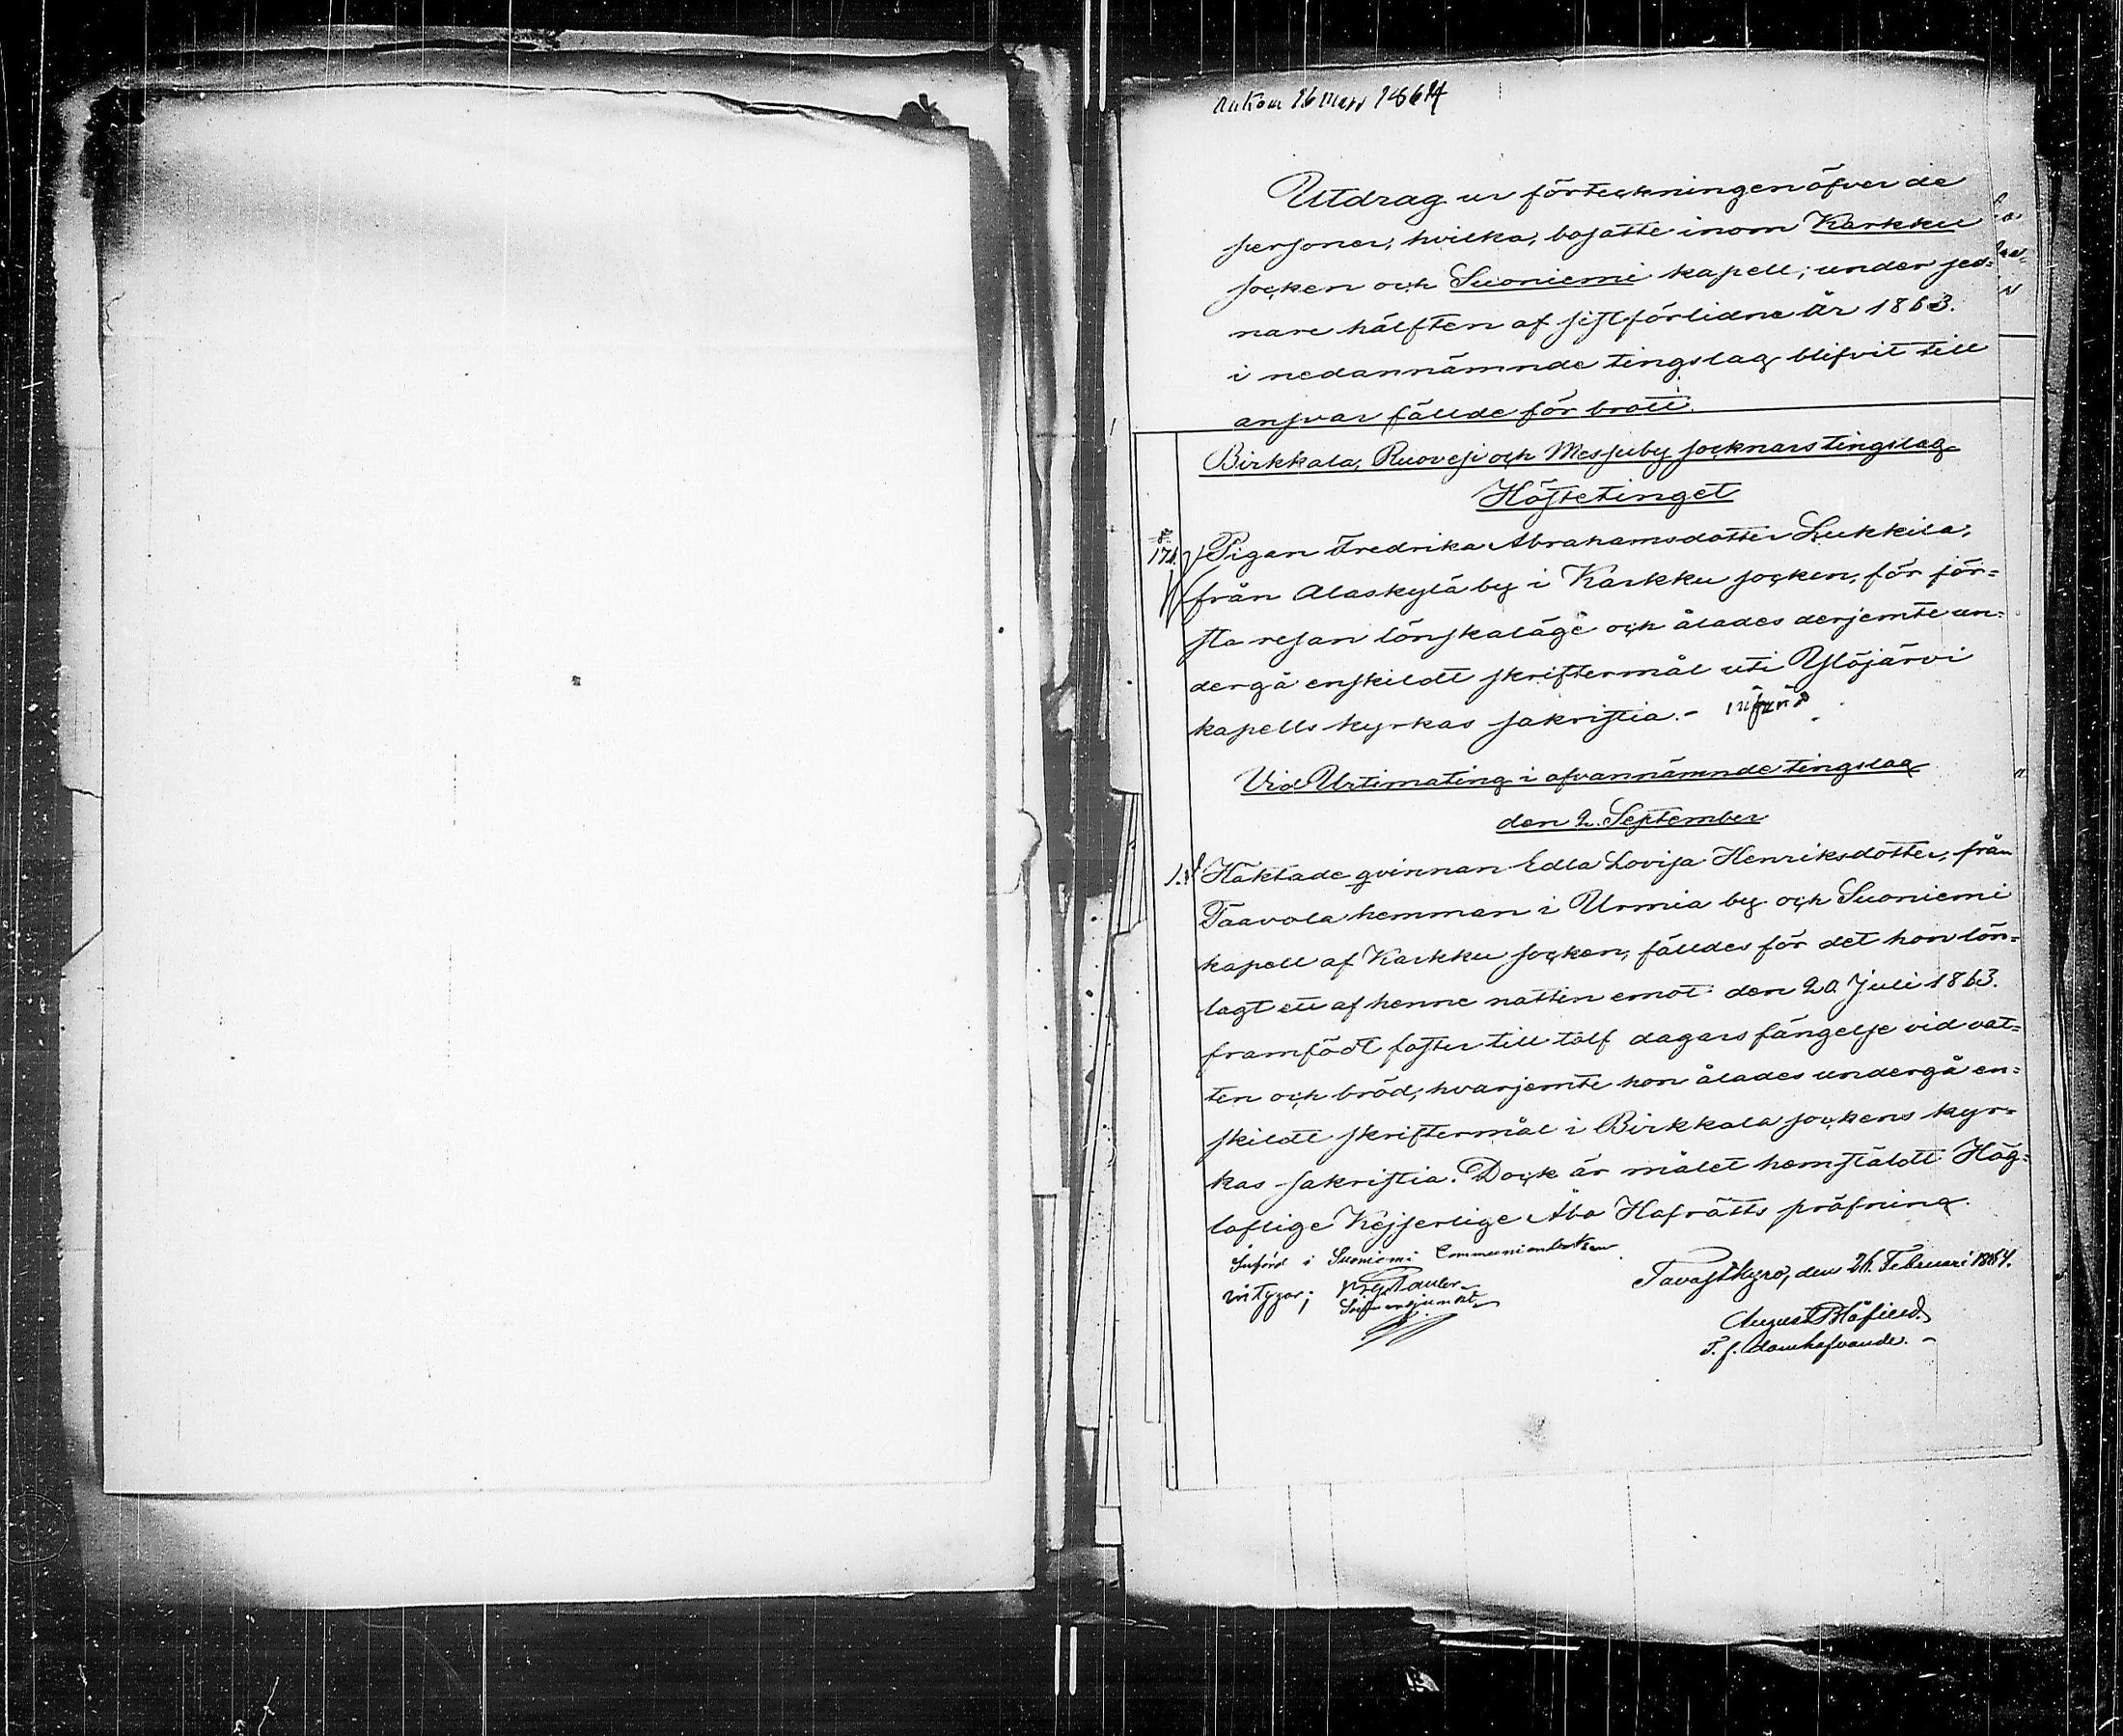 Ankom 16 Mars 1864
Utdrag ur förteckningen öfver de
personer, hvilka, bosatte inom Karkku
socken och Suoniemi kapell, under sed=
nare hälften af sistförlidne år 1863.
i nedannämnde tingslag blifvit till
ansvar fällde för brott.
Birkkala, Ruovesi och Messuby socknars tingslag
Höstetinget
171. Pigan Fredrika Abrahamsdotter Lukkila,
från Alaskylä by i Karkku socken, för för=
sta resan lönskaläge och ålades derjemte un=
dergå enskildt skriftermål uti Ylöjärvi
kapells kyrkas sakristia.- införd
Vid Urtimating i ofvannämnde tingslag
den 2. September
1. Häktade qvinnan Edla Lovisa Henriksdotter, från
Taavola hemman i Urmia by och Suoniemi
kapell af Karkku socken, fälldes för det hon lön=
lagt ett af henne natten emot den 20 Juli 1863.
framfödt foster till tolf dagars fängelse vid vat=
ten och bröd, hvarjemte hon ålades undergå en=
skildt skriftermål i Birkkala sockens kyr=
kas sakristia. Dock är målet hemstäldt Hög=
loflige Kejserlige Åbo Hofrätts pröfning.
Införd i Suoniemi Communionboken
intygar;
Tavastkyro, den 26. Februari 1864.
August Blåfield.
T. f. domhafvande. -